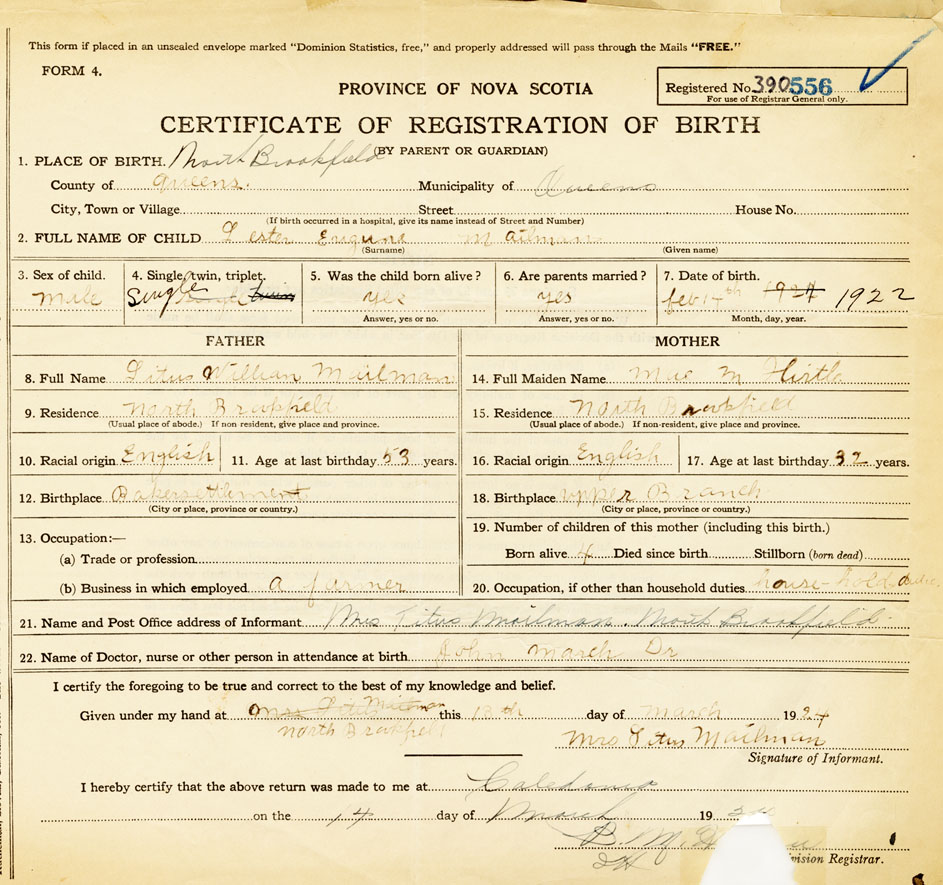 This form if placed in an unsealed envelope marked "Dominion Statistics, free," and properly addressed will pass through the Mails "FREE."
FORM 4.
PROVINCE OF NOVA SCOTIA
Registered No. 390556
For use of Registrar General only.
CERTIFICATE OF REGISTRATION OF BIRTH
(BY PARENT OR GUARDIAN)
1. PLACE OF BIRTH. North Brookfield
County of Queens. Municipality of Queens
City, Town or Village Street House No.
(If birth occurred in a hospital, give its name instead of Street and Number)
2. FULL NAME OF CHILD Lester Eugune Mailman
(Surname) (Given name)
3. Sex of child. 4. Single, twin, triplet. 5. Was the child born alive? 6. Are parents married? 7. Date of birth.
Male Single twin yes yes feb 14th 1924 1922
Answer, yes or no. Answer, yes or no. Month, day, year.
FATHER MOTHER
8. Full Name Titus William Mailman 14. Full Maiden Name Mae M Hirtle
9. Residence North Brookfield 15. Residence North Brookfield
(Usual place of abode.) If non resident, give place and province. (Usual place of abode.) If non-resident, give place and province.
10. Racial origin English 11. Age at last birthday 53 years. 16. Racial origin English 17. Age at last birthday 32 years.
12. Birthplace Bakersettlement 18. Birthplace upper Branch
(City or place, province or country.) (City or place, province or country.)
19. Number of children of this mother (including this birth.)
13. Occupation:—
(a) Trade or profession Born alive 4 Died since birth Stillborn (born dead)
(b) Business in which employed a farmer 20. Occupation, if other than household duties house-hold duties
21. Name and Post Office address of Informant Mrs Titus Mailman. North Brookfield.
22. Name of Doctor, nurse or other person in attendance at birth John March Dr
I certify the foregoing to be true and correct to the best of my knowledge and belief.
Given under my hand at Mrs Titus Mailman this 13th day of March 1924
North Brookfield Mrs Titus Mailman
Signature of Informant.
I hereby certify that the above return was made to me at Caledonia
on the 14 day of March 1924
B. M.
ivision Registrar.